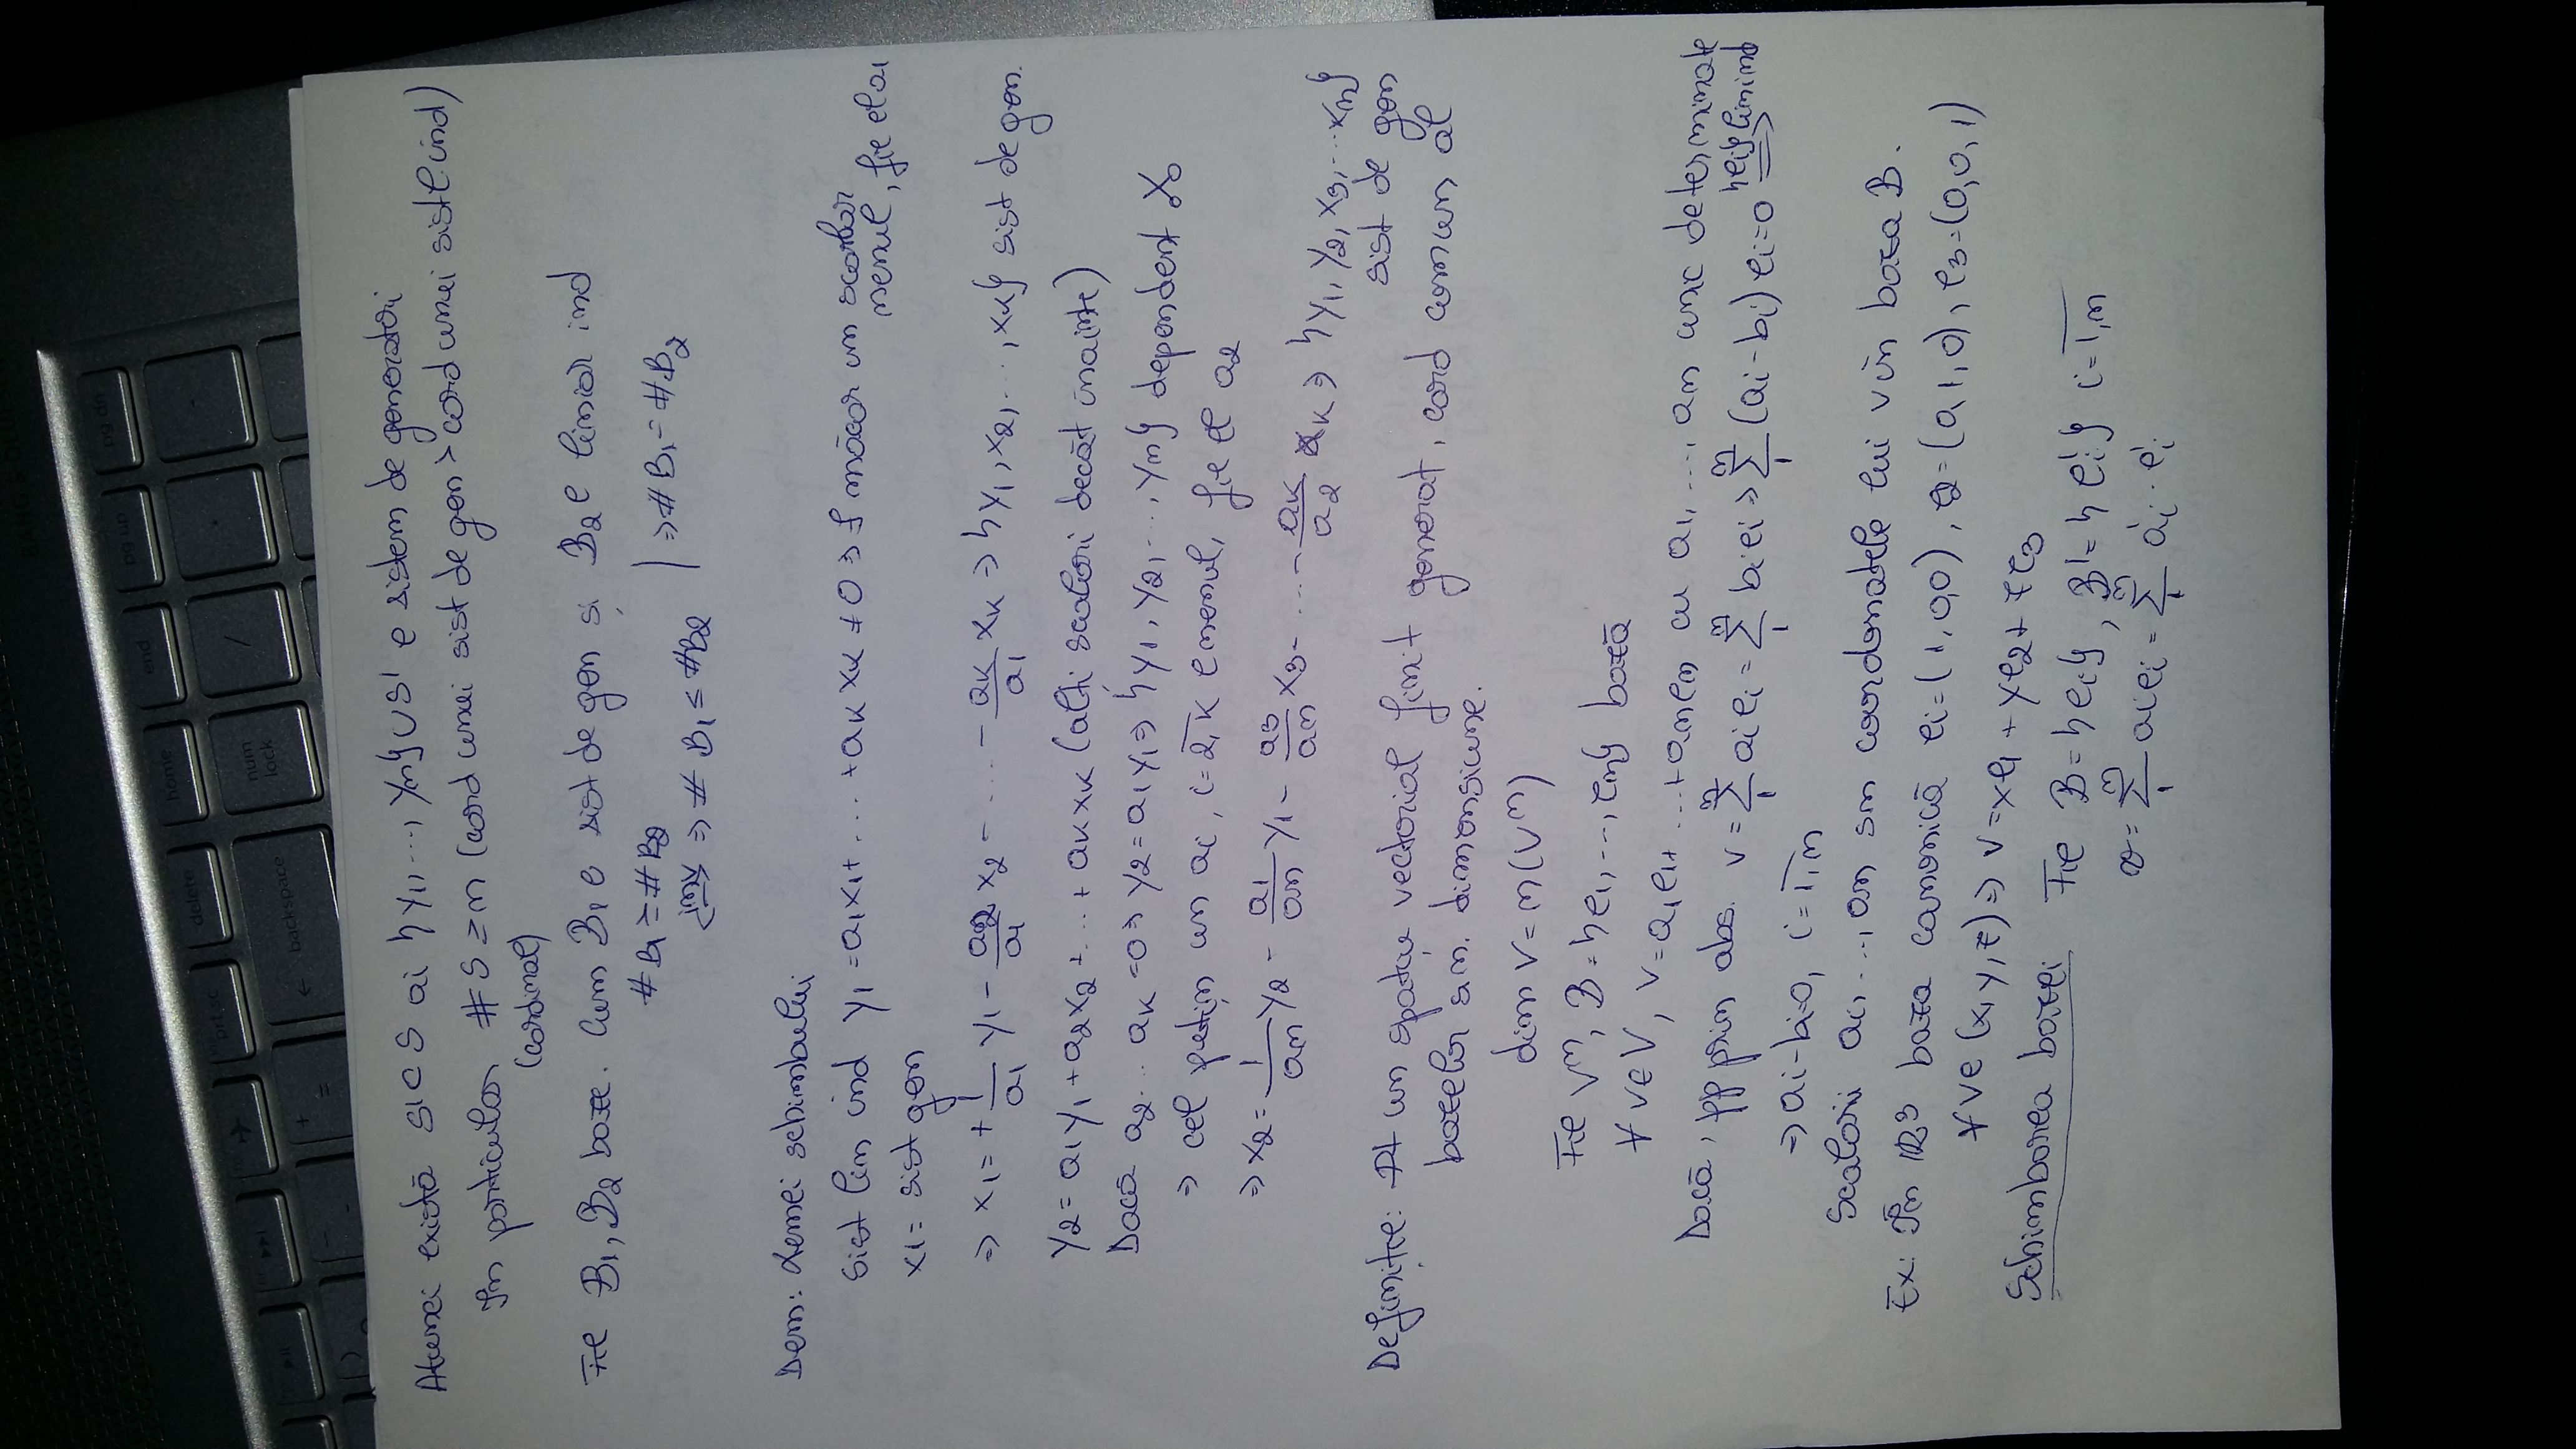 Atunci există S' ⊂ S aî {y1, ..., ym} ∪ S' e sistem de generatori
În particular #S ≥ m (card unei sist de gen > card unei sist lind)
(cardinal)
Fie B1, B2 baze. Cum B1 e sist de gen și B2 e liniar ind
#B1 ≥ #B2
inv ⇒ #B1 ≤ #B2 | ⇒ #B1 = #B2
Dem: Lemei schimbului
sist lin ind y1 = a1x1 + ... + akxk ≠ 0 ⇒ ∃ măcar un scalar
x1 = sist gen
nenul, fie el a1
⇒ x1 = + 1/a1 y1 - a2/a1 x2 - ... - ak/a1 xk ⇒ {y1, x2, ..., xk} sist de gen.
y2 = a1y1 + a2x2 + ... + akxk (alți scalari decât înainte)
Dacă a2 ... ak = 0 ⇒ y2 = a1y1 ⇒ {y1, y2, ..., ym} dependent
⇒ cel puțin un ai, i = 2,k e nenul, fie el a2
⇒ x2 = 1/an y2 - a1/an y1 - a3/an x3 - ... - ak/a2 xk ⇒ {y1, y2, x3, ... xn}
sist de gen
Definiție: Pt un spațiu vectorial finit generat, card comun al
bazelor s.n. dimensiune.
dim V = n (Vn)
Fie Vn, B = {e1, ..., en} bază
∀ v∈V, v = a1e1 + ... + anen cu a1, ..., an unic determinate
Dacă, pp prin abs. v = Σ1n aiei = Σ1n biei ⇒ Σ1n (ai - bi) ei = 0 ⇒
{ei} lin ind
⇒ ai - bi = 0, i = 1,n
Scalarii a1, ..., an sn coordonatele lui v în baza B.
Ex: În R3 baza canonică e1 = (1,0,0), e2 = (0,1,0), e3 = (0,0,1)
∀ v∈(x,y,z) ⇒ v = xe1 + ye2 + ze3
Schimbarea bazei Fie B = {ei}, B' = {e'i} i = 1,n
v = Σ1n aiei = Σ1n a'i · e'i
prt sc
delete
home
end
pg up
pg dn
backspace
num
lock